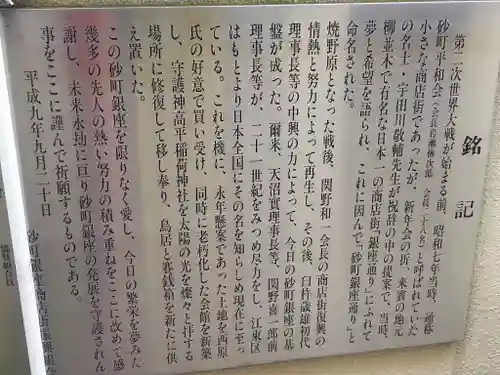 銘記
第二次世界大戦が始まる前、昭和七年当時、通称
砂町平和会(会長岩瀬楠次郎 会員二十八名)と呼ばれていた
小さな商店街であったが、新年会の折、来賓の地元
の名士・宇田川敬輔先生が祝辞の中の提案で、当時、
柳並木で有名な日本一の商店街「銀座通り」にふれて
夢と希望を語られ、これに因んで「砂町銀座通り」と
命名された。
焼野原となった戦後、関野和一会長の商店街復興の
情熱と努力によって再生し、その後、臼杵歳雄初代
理事長等の中興の力によって、今日の砂町銀座の基
盤が成った。爾来、天沼實理事長等、関野喜一郎前
理事長等が、二十一世紀をみつめ尽力をし、江東区
はもとより日本全国にその名を知らしめ現在に至っ
ている。これを機に、永年懸案であった土地を西原
氏の好意で買い受け、同時に老朽化した会館を新築
し、守護神高平稲荷神社を太陽の光を燦々と拝する
場所に修復して移し奉り、鳥居と賽銭箱を新たに供
え置いた。
この砂町銀座を限りなく愛し、今日の繁栄を夢みた
幾多の先人の熱い努力の積み重ねをここに改めて感
謝し、未来永劫に亘り砂町銀座の発展を守護されん
事をここに謹んで祈願するものである。
平成九年九月二十日
砂町銀座商店街振興組合